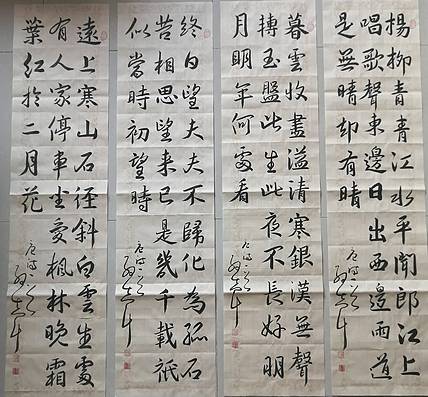 楊柳青青江水平聞郎江上
唱歌聲東邊日出西邊雨道
是無晴却有晴
暮雲收盡溢清寒銀漢無聲
轉玉盤此生此夜不長好明
月明年何處看
終日望夫夫不歸化為孤石
苦相思望來已是幾千載祇
似當時初望時
遠上寒山石徑斜白雲生處
有人家停車坐愛楓林晚霜
葉紅於二月花